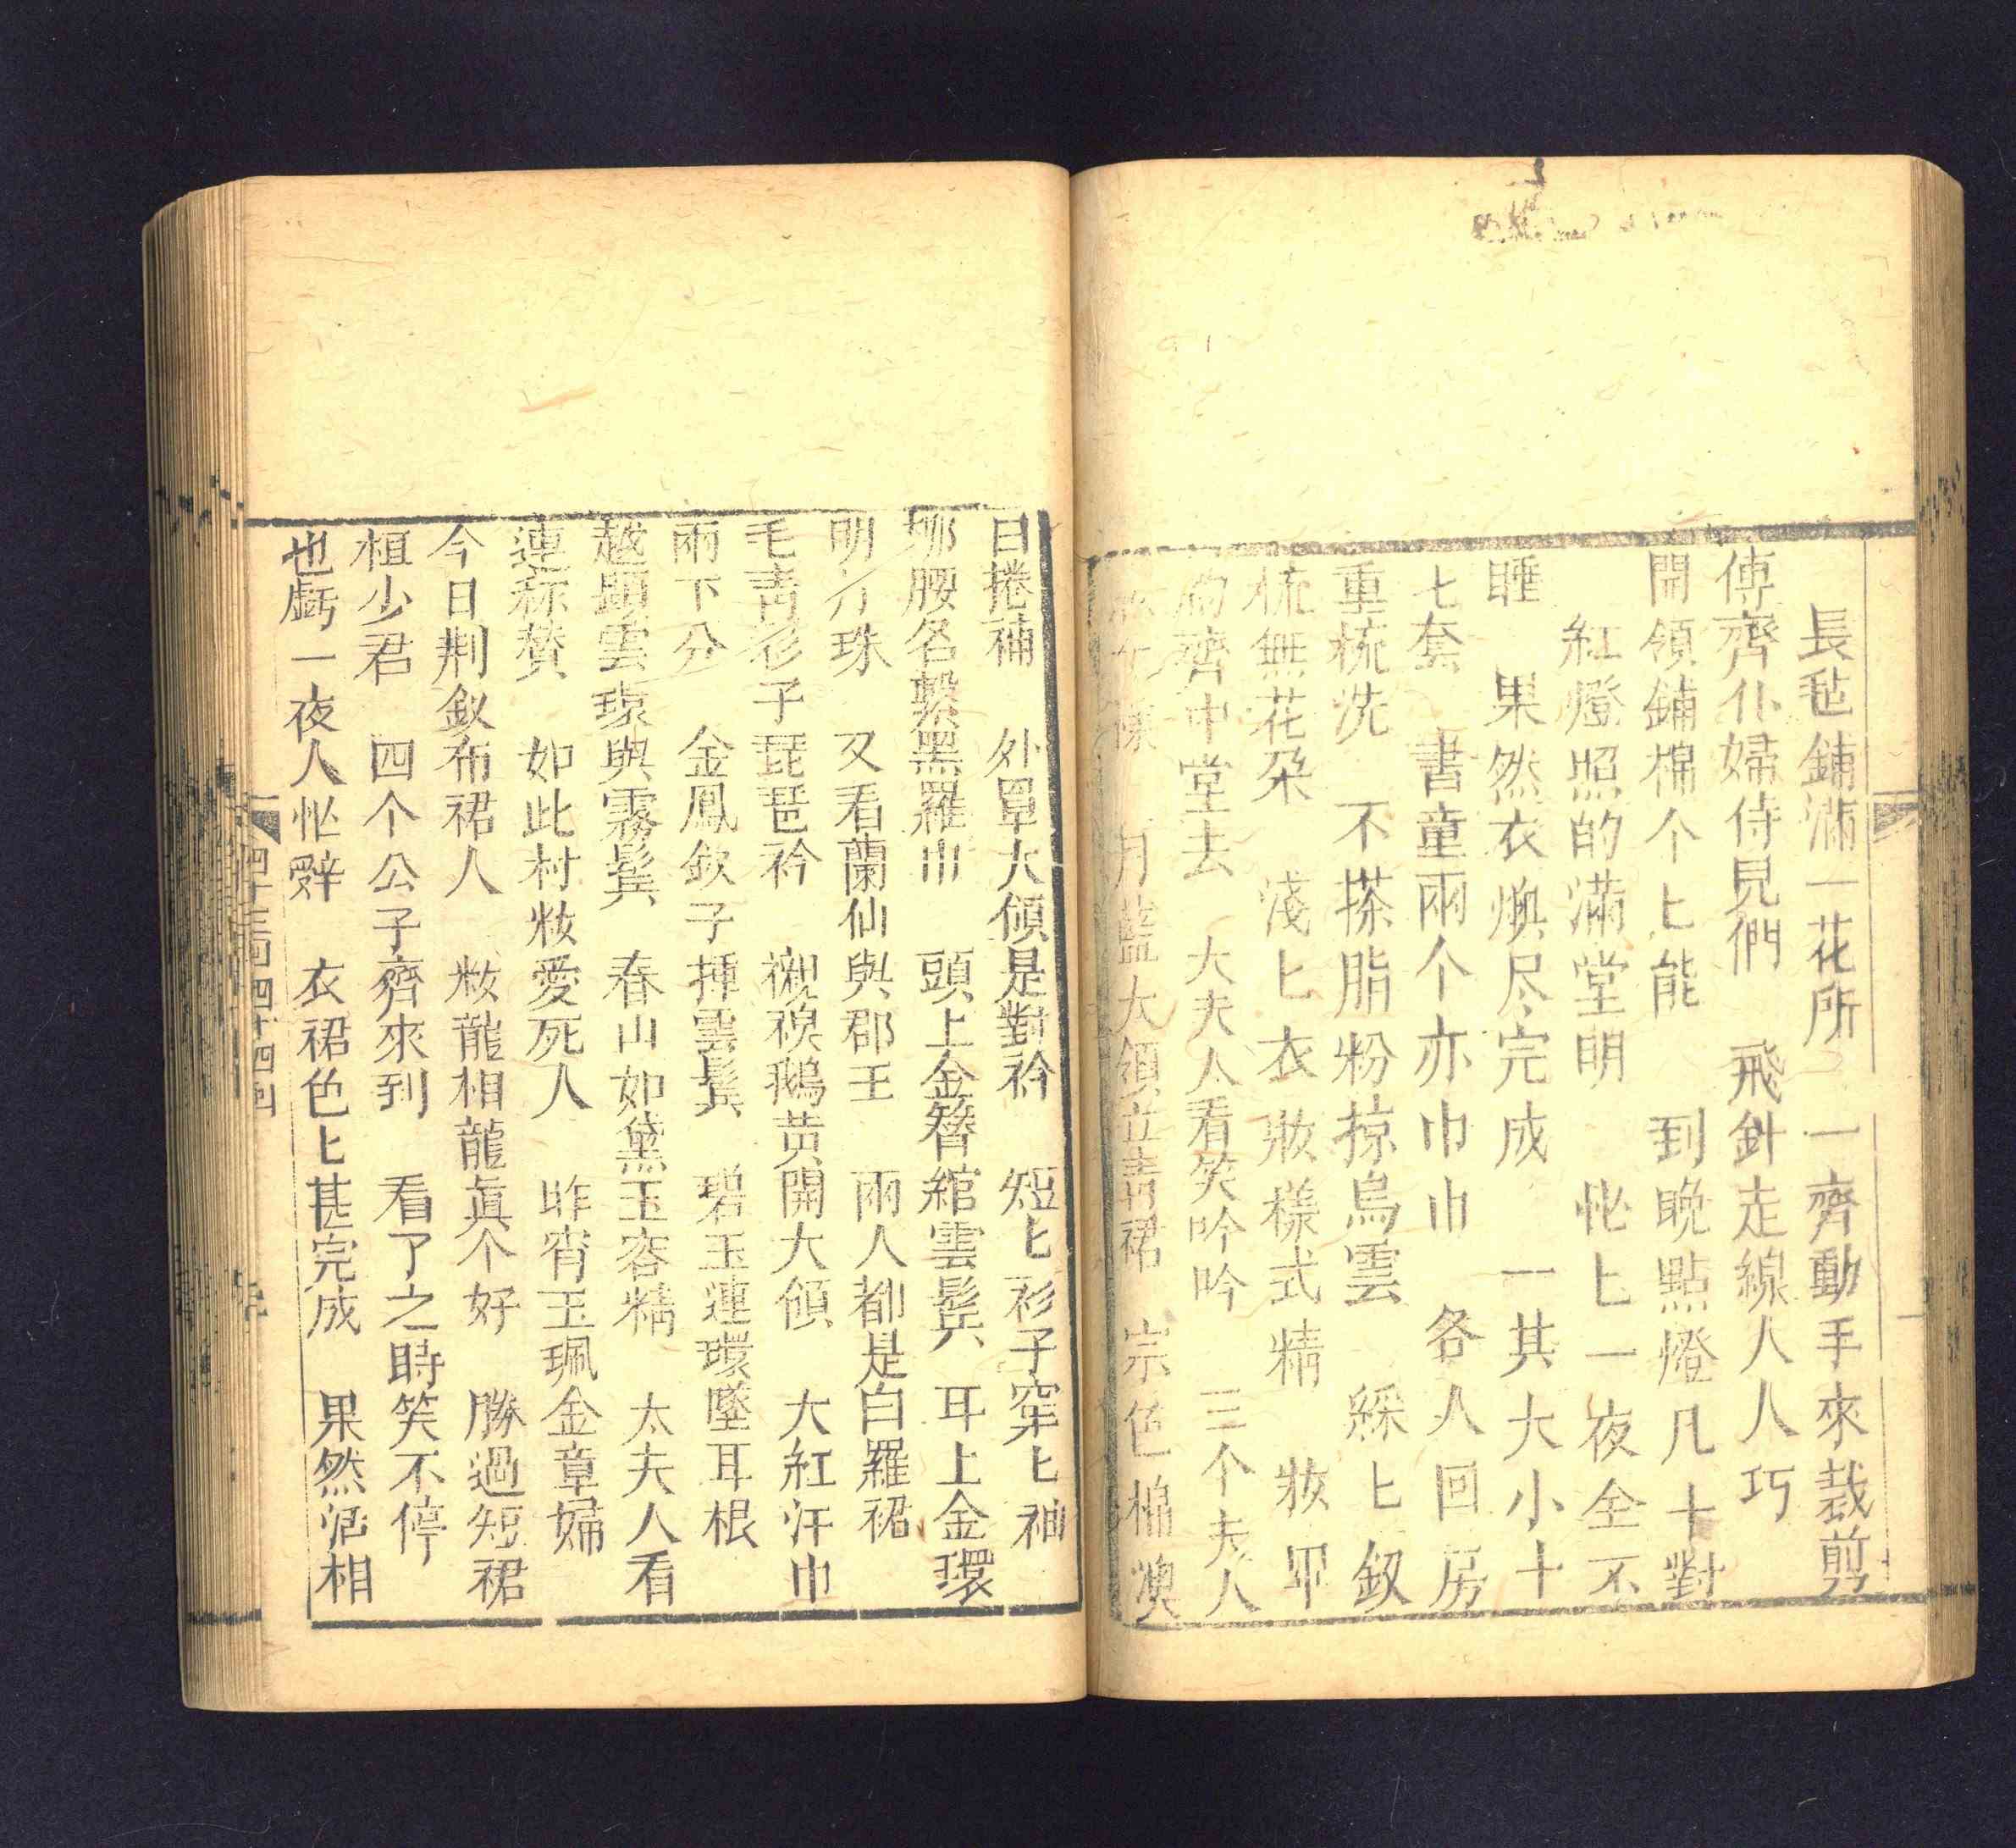 長毡鋪滿一花所　一齊動手來裁剪
傳齊仆婦侍見們　飛針走線人人巧
開領鋪棉个匕能　到晚點燈凡十對
紅燈照的滿堂明　忙匕一夜全不
睡　果然衣燠尽完成　一其大小十
七套　書童兩个亦巾巾　各人回房
重梳洗　不搽脂粉掠烏雲　綵匕釵
梳無花朶　淺匕衣妝樣式精　妝畢
齊中堂去　大夫人看笑吟吟　三个夫人
樣　月藍大領立青裙　宗色棉澳
日捲補　外罩大領是對衿　短匕衫子窄匕袖
柳腰名繫黑羅巾　頭上金簪綰雲鬓　耳上金環
明亣珠　又看蘭仙與郡王　兩人都是白羅裙
毛青衫子琵琶衿　襯袄鵝黄開大領　大紅汗巾
兩下分　金鳳釵子揷雲鬓　碧玉連環墜耳根
越顕雲環與霧鬓　春山如黛玉容精　太夫人看
連称賛　如此村妝愛死人　昨宵玉珮金章婦
今日荆釵布裙人　妝龍相龍眞个好　勝過短裙
桓少君　四个公子齊來到　看了之時笑不停
也虧一夜人忙辤　衣裙色匕甚完成　果然活相
四十三回四十四回